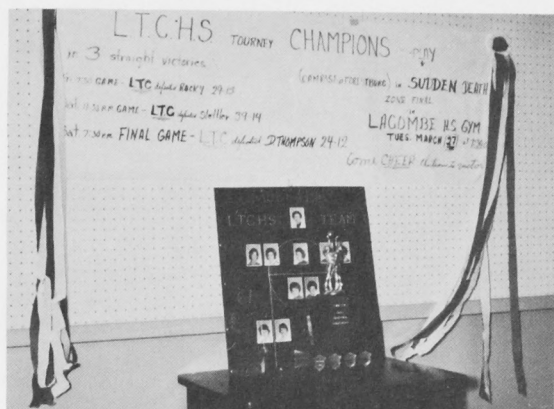 L.T.C.H.S TOURNEY CHAMPIONS PLAY
in 3 straight victories
GAME - LTC defeated ROCKY 29-13
GAME - LTC defeated Stettler 39-14
Sat. 7:30 P.M. FINAL GAME - LTC defeated D. THOMPSON 24-12
in SUDDEN DEATH
ZONE FINAL
in
LACOMBE H.S GYM
TUES. MARCH 27
Come CHEER them to
LTCHS TEAM